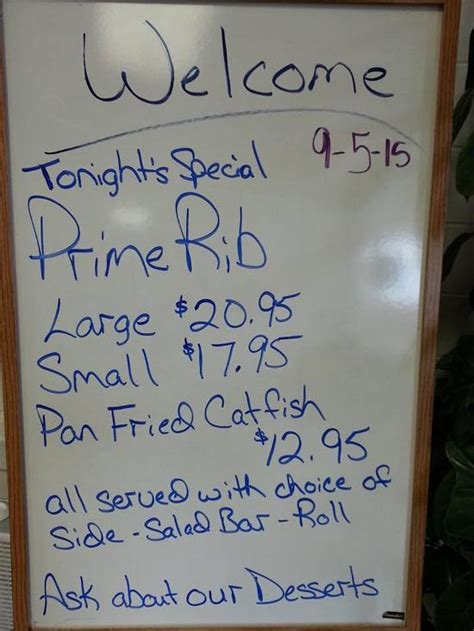 Welcome
9-5-15
Tonight's Special
Prime Rib
Large $20.95
Small $17.95
Pan Fried Catfish
$12.95
all served with choice of
Side - Salad Bar - Roll
Ask about our Desserts